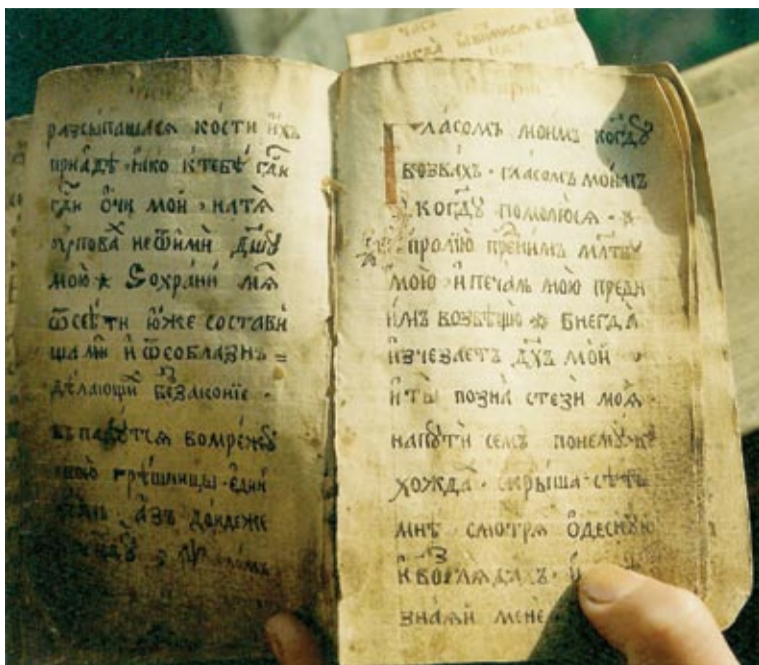 разсыпашася кости и́хъ
приа́дѣ · я́ко ктебѣ̀ гд҃и
гд҃и о́чи мои̑ · натѧ̀
оу҆пова̀ неѿимѝ дш҃ꙋ
мою̀ * Ѕохрани̑ мѧ̀
ѿсѣ́ти ю҆́же состави
ша мѝ и҆ ѿсоблазнъ =
дѣлающи беззако́нїе ·
въпадꙋ́тсѧ вомре́жꙋ
свою̀ грѣ́шницы · еди́нъ
а҆́зъ до́ндеже
Гла́сомъ мои́мъ когд҃ꙋ
возва́хъ · гла́сомъ мои́мъ
когд҃ꙋ помолю́сѧ · *
пролїю̀ пре́нимъ мл҃твꙋ
мою̀ · и҆ печа́ль мою̀ предн
и́мъ возвѣщю̀ * Внегда̀
и҆зчеза́етъ дх҃ъ мо́й ·
и҆ ты̀ позна̀ стезѝ моѧ̑
напꙋтѝ се́мъ поне́мꙋже
хожда́ · скры́ша сѣ́ть
мнѣ̀ смотрѧ̀ о҆деснꙋ́ю
и҆ возглѧ́дахъ · и҆
зна́ѧй мене